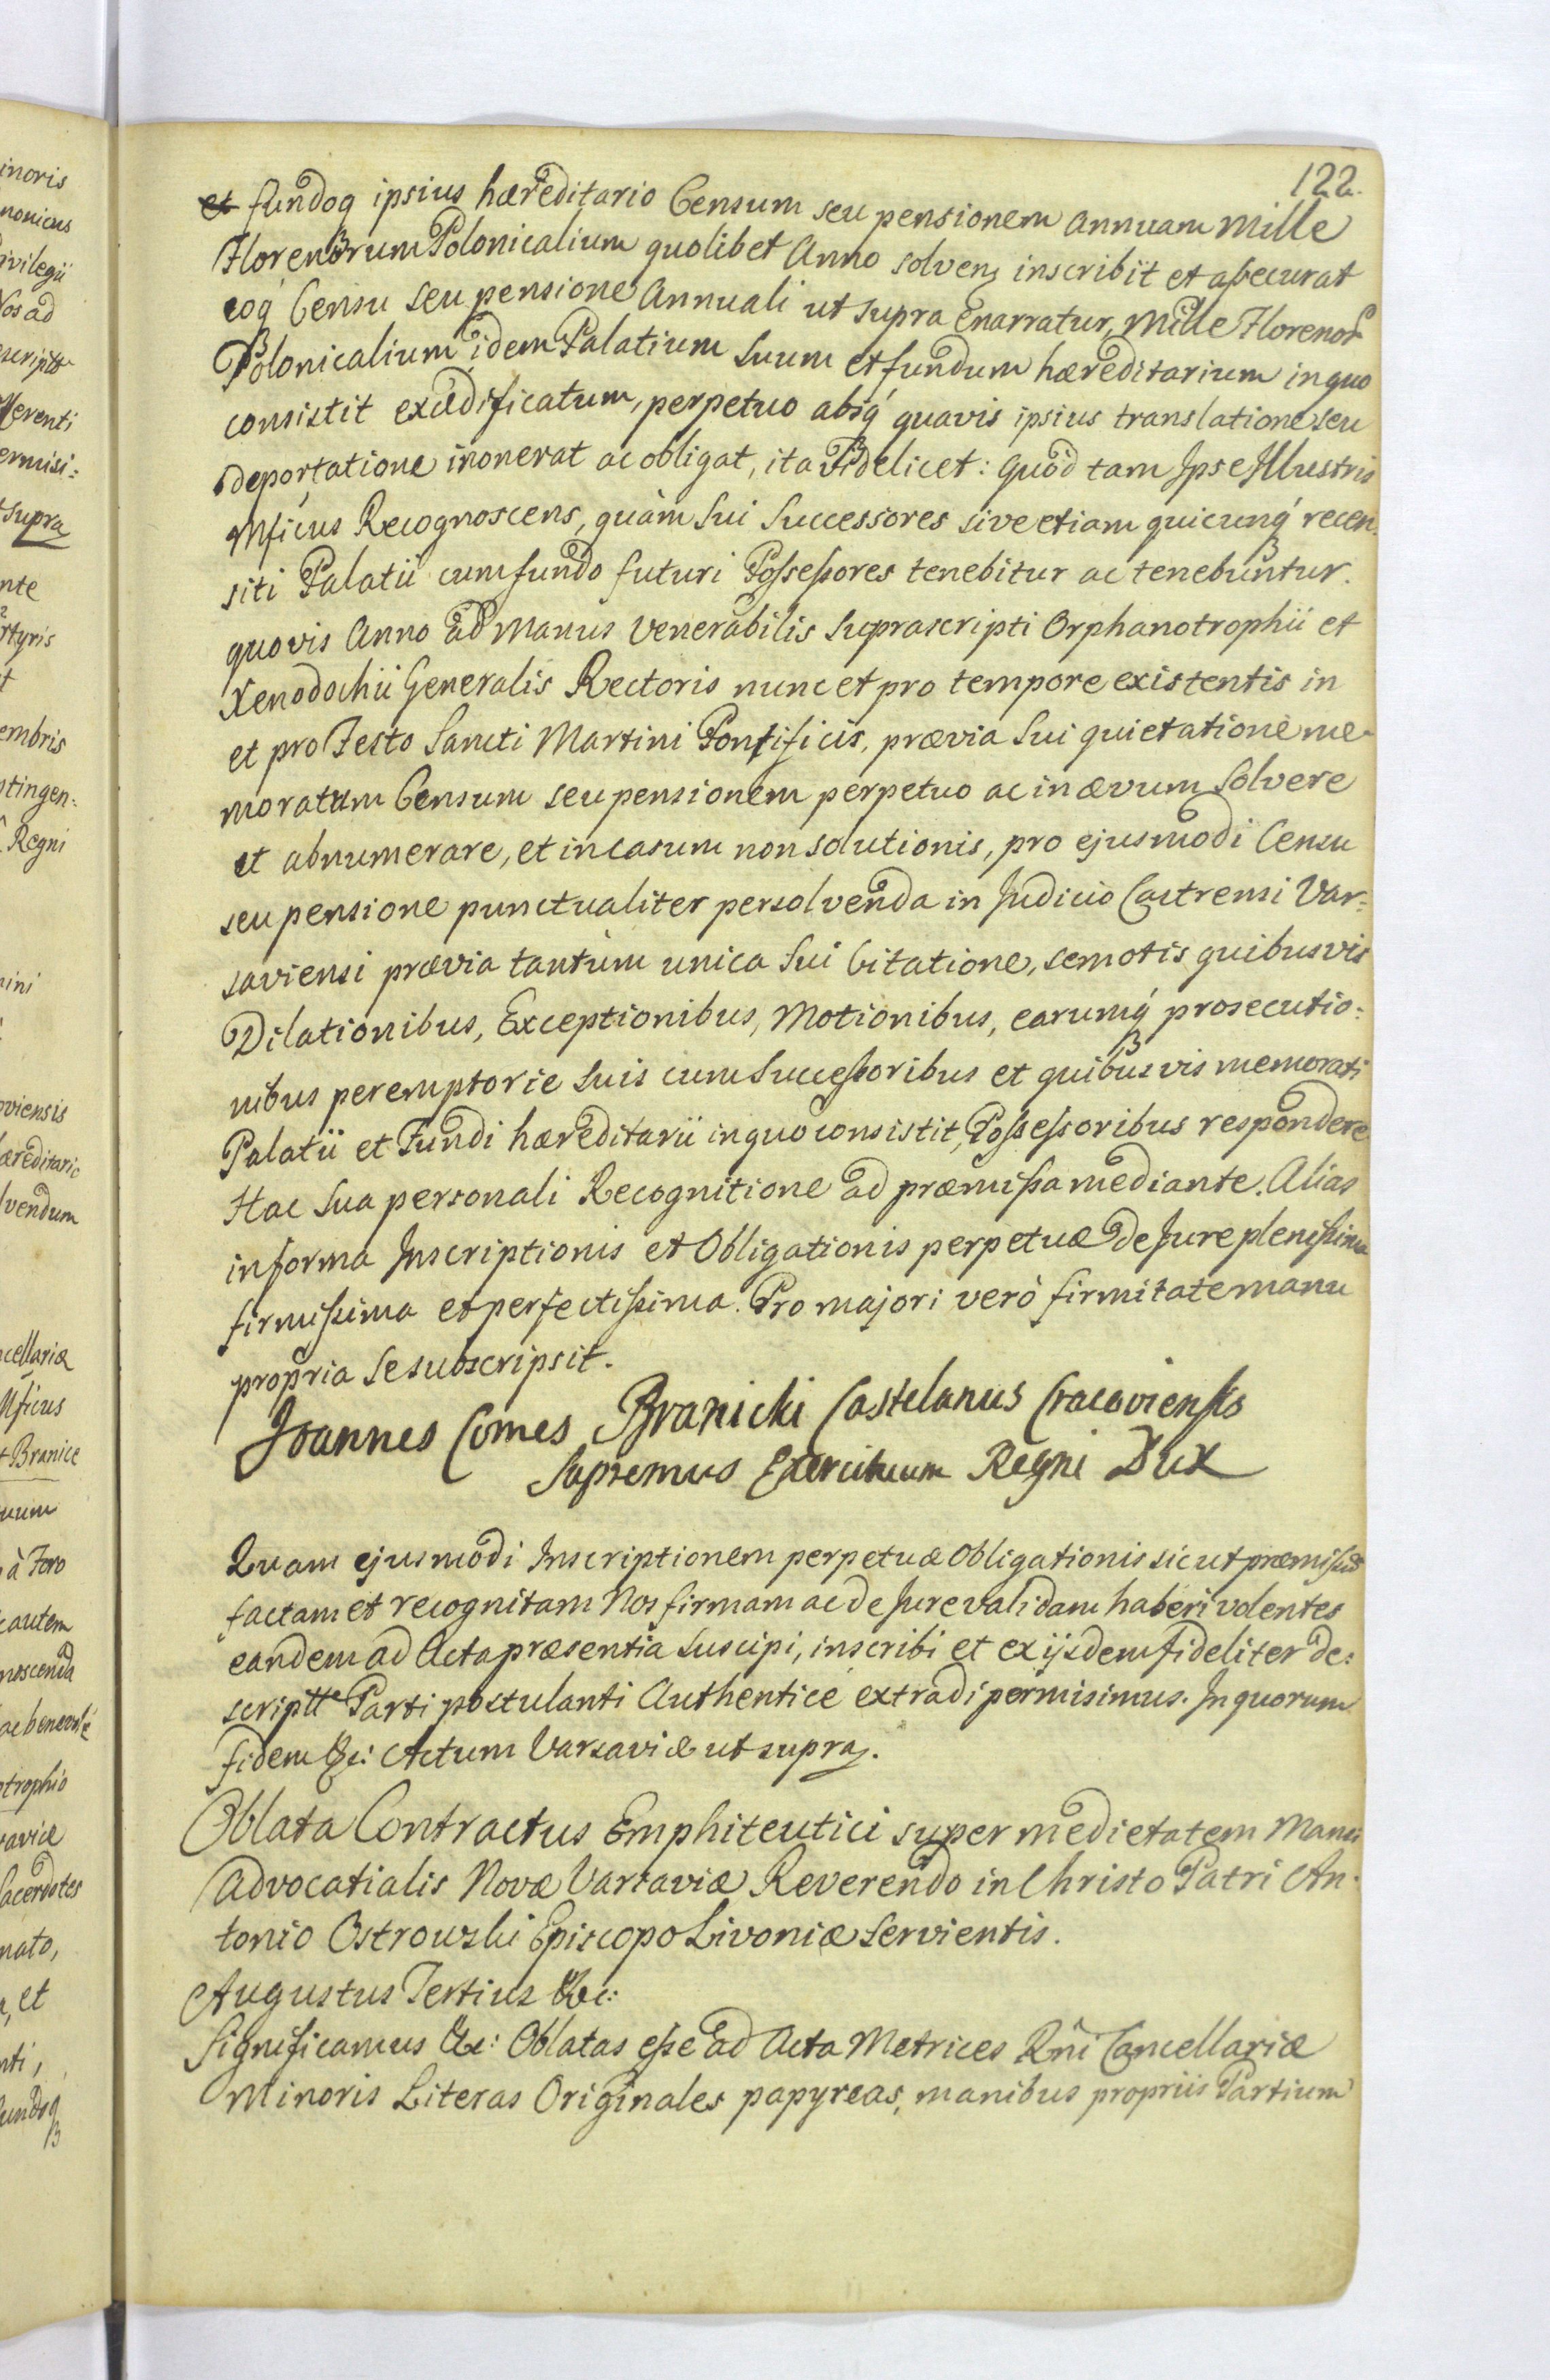 122.
et fundoq ipsius hæreditario Censum seu pensionem annuam Mille
Florenorum Polonicalium quolibet Anno solven inscribit et assecurat
eoq́ Censu seu pensione Annuali ut supra Enarratur, Mille Florenor
Polonicalium idem Palatium suum et fundum hæreditarium in quo
consistit exædificatum, perpetuo absq́ quavis ipsius translatione seu
deportatione inonerat ac obligat, ita videlicet: quod tam Ipse Illustris
Mficus Recognoscens, quàm sui Successores sive etiam quicunq́ recen
siti Palatii cum fundo futuri Possessores tenebitur ac tenebuntur.
quovis Anno ad manus Venerabilis suprascripti Orphanotrophii et
Xenodochii Generalis Rectoris nunc et pro tempore existentis in
et pro Festo Sancti Martini Pontificis, prævia sui quietatione me
moratum Censum seu pensionem perpetuo ac in ævum solvere
et abnumerare, et in casum non solutionis, pro ejusmodi Censu
seu pensione punctualiter persolvenda in Judicio Castrensi Var:
saviensi prævia tantùm unica sui Citatione, semotis quibusvis
Dilationibus, Exceptionibus, Motionibus, earumq́ prosecutio:
nibus peremptorie suis cum Successoribus et quibusvis memorati
Palatii et Fundi hæreditarii in quo consistit, Possessoribus respondere
Hac sua personali Recognitione ad præmissa mediante. Alias
in forma Inscriptionis et Obligationis perpetuæ de Jure plenissima
firmissima et perfectissima. Pro majori verò firmitate manu
propria se subscripsit.
Joannes Comes Branicki Castelanus Cracoviensis
Supremus Exercituum Regni Dux
Quam ejusmodi Inscriptionem perpetuæ Obligationis sicut præmissũ
factam et recognitam Nos firmam ac de Jure validam haberi volentes
eandem ad Acta præsentia suscipi, inscribi et ex ijsdem fideliter de:
scriptt Parti postulanti Authenticè extradi permisimus. In quorum
fidem &c: Actum Varsaviæ ut supra.
Oblata Contractus Emphiteutici super medietatem Mansi
Advocatialis Novæ Varsaviæ Reverendo in Christo Patri An:
tonio Ostrowski Episcopo Livoniæ servientis.
Augustus Tertius &c:
Significamus &c: Oblatas esse ad Acta Metrices Rñi Cancellariæ
Minoris Literas Originales papyreas, manibus propriis Partium
inoris
nonicus
ivilegii
Nos ad
erenti
ermisi:
supra
nte
rtyris
embris
tingen:
Regni
nini
oviensis
æreditario
lvendum
ncellariæ
Mficus
Branice
uum
à Foro
autem
noscenda
ac benevole
trophio
aviæ
Sacerdotes
nato,
et
nti,
fundoq